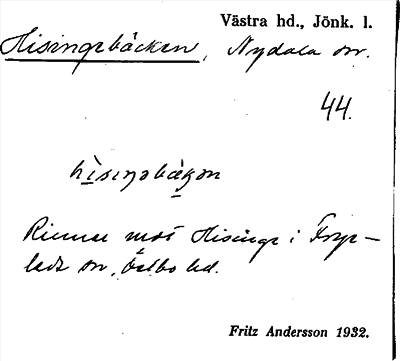 Västra hd., Jönk. l.
Hisingebäcken, Nydala sn.
44.
hìsiŋəbäkən
Rinner mot Hisinge i Frye-
leds sn, Östbo hd.
Fritz Andersson 1932.